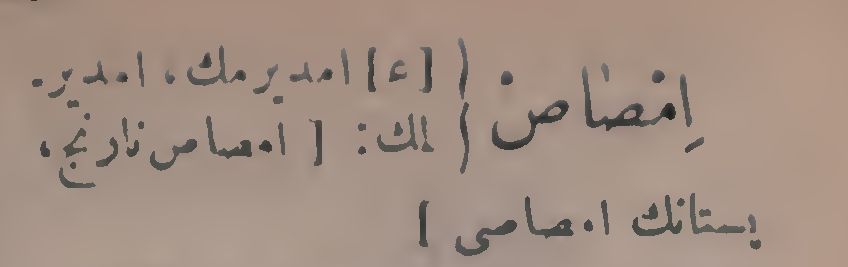 اِمْصَاصْ ( [ع] امدیرمك، امدیر-
( لمك: [ امصاص نارنج،
پستانك امصاصی ]